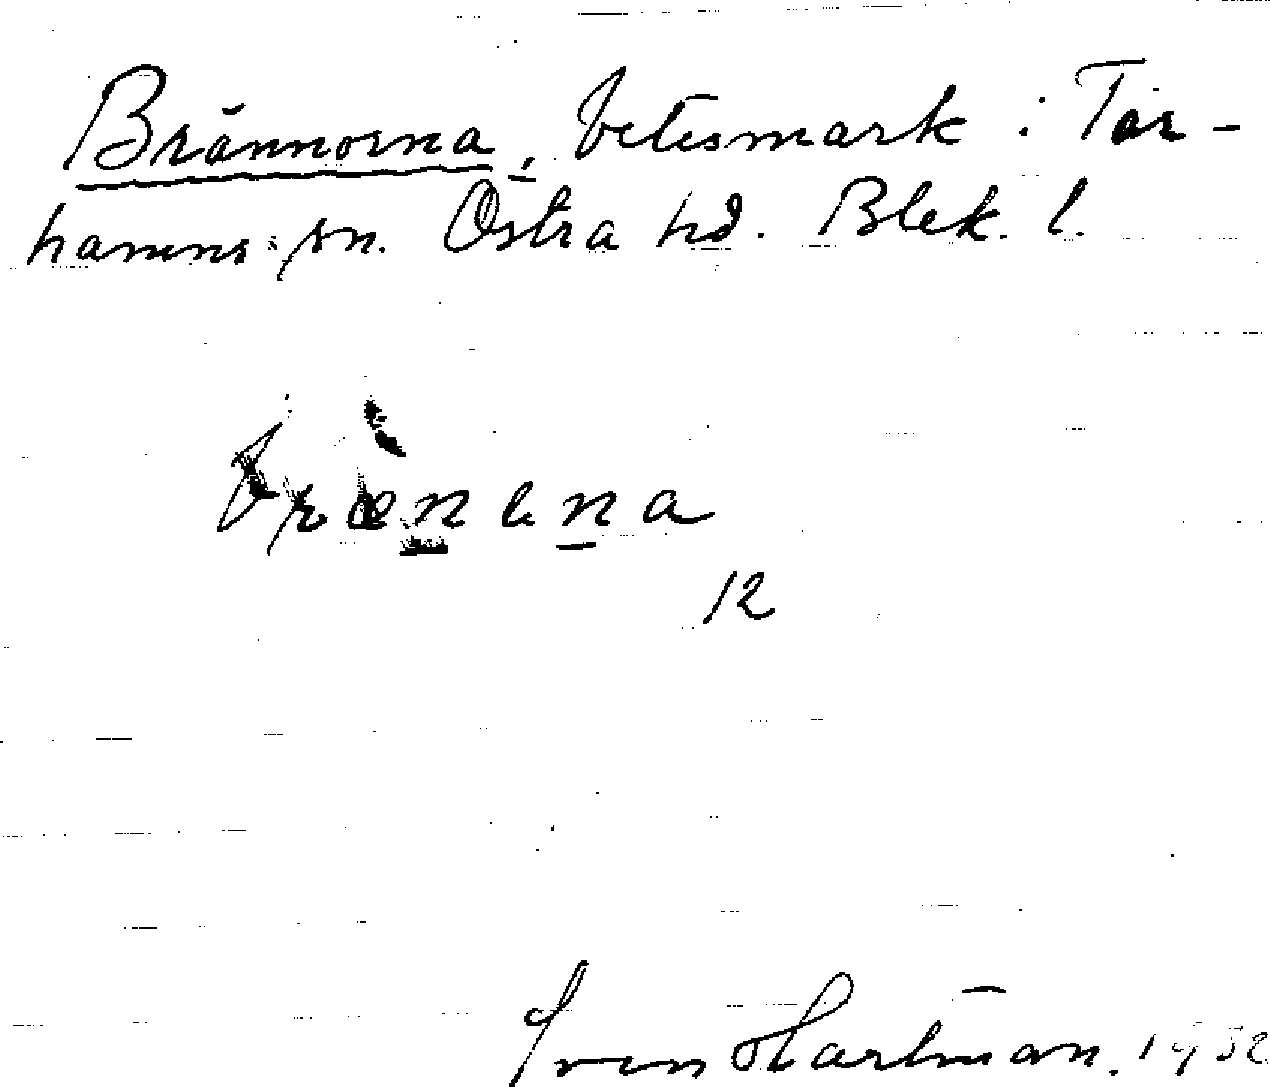 Brännorna, betesmark i Tor-
hamns sn. Östra hd. Blek. l.
brænena
12
Sven Hartman. 1932